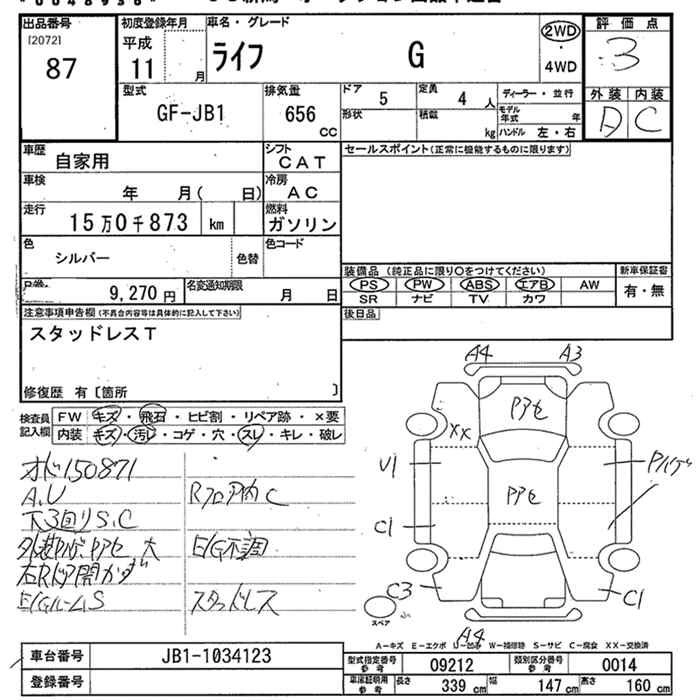 出品番号
[2072]
87
初度登録年月
平成
11 月
車名・グレード
ライフ G
2WD
・
4WD
評価点
3
外装 内装
A C
型式
GF-JB1
排気量
656
CC
ドア
5
定員
4 人
ディーラー・並行
形状
積載
kg
モデル年式 年
ハンドル 左・右
車歴
自家用
シフト
CAT
セールスポイント(正常に機能するものに限ります)
車検
年 月( 日)
冷房
AC
走行
15万0千873 km
燃料
ガソリン
色
シルバー
色替
色コード
装備品 (純正品に限り○をつけてください)
新車保証書
PS PW ABS エアB AW
有・無
SR ナビ TV カワ
9,270円
名変通知期限
月 日
後日品
注意事項申告欄(不具合内容等は具体的に記入して下さい)
スタッドレスT
修復歴 有〔箇所 〕
検査員
記入欄
FW キズ・飛石・ヒビ割・リペア跡・×要
内装 キズ・汚レ・コゲ・穴・スレ・キレ・破レ
オド150871
A.U
下3回りS.C
右Rドア開カズ
E/GルームS
Rフロア内C
E/G不調
スタッドレス
A4 A3
Pアセ
XX
U1
Pアセ
C1
C3
C1
A4
スペア
A-キズ E-エクボ U-凹み W-補修跡 S-サビ C-腐食 XX-交換済
車台番号
JB1-1034123
登録番号
型式指定番号
参考
09212
類別区分番号
参考
0014
車庫証明用
参考
長さ 339 cm 幅 147 cm 高さ 160 cm